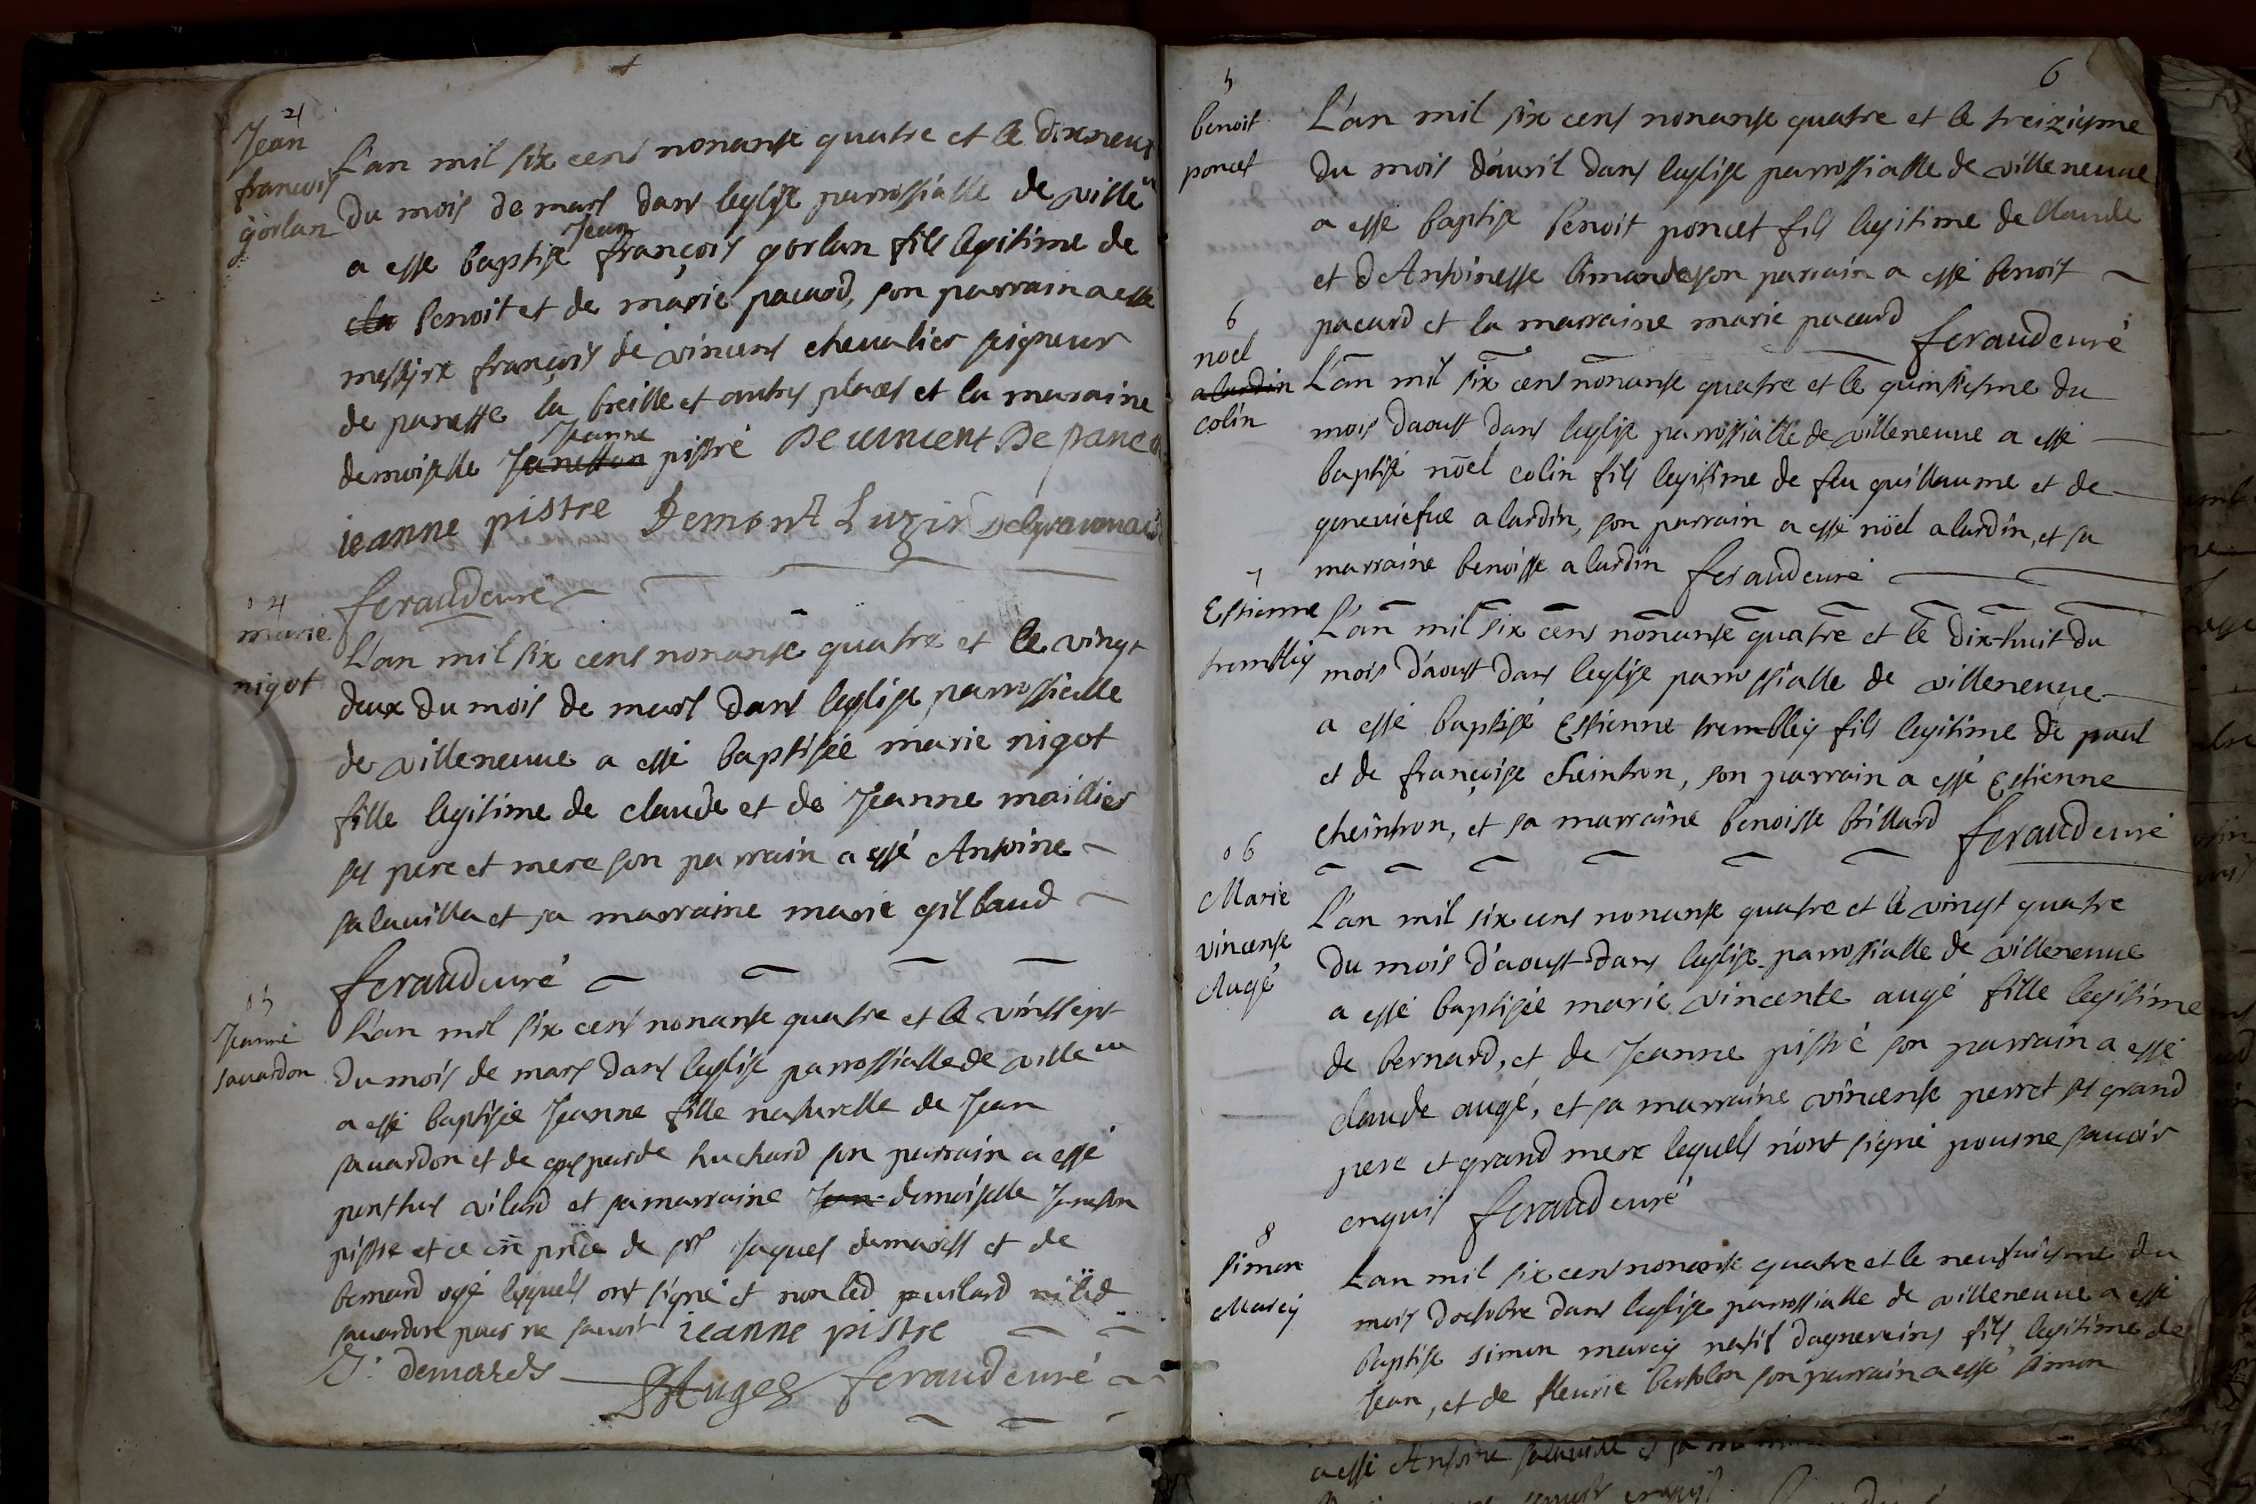 4
Jean
francois
gorlan
L'an mil six cens nonante quatre et le dixneuf
du mois de mars dans leglise parrossialle de ville
a esté baptisé Jean françois gorlan fils legitime de
benoit et de marie pacard, son parrain a esté
messire françois de vincens chevalier seigneur
de panette la breille et autres places et la maraine
demoiselle Jeanne pistré De vincent De panet
ieanne pistre Demont Luzin
feraud curé
4
marie
nigot
L'an mil six cens nonante quatre et le vingt
deux du mois de mars dans leglise parrossialle
de villeneuue a esté baptisée marie nigot
fille legitime de claude et de Jeanne maillier
ses pere et mere son parrain a esté Antoine
salavilla et sa marraine marie gilbaud
feraud curé
5
Jeanne
sauardon
L'an mil six cens nonante quatre et le vintsept
du mois de mars dans leglise parrossialle de ville
a esté baptisée Jeanne fille naturelle de Jean
sauardon et de gasparde huchard son parrain a esté
ponthus vilard et sa marraine demoiselle Jeneton
pistre et ce en pnce de sr Jaques demarest et de
bernard ogé lesquels ont signé et non led
sauardon pour ne sauoir ieanne pistre
J: demarests
Auges feraud curé
6
5
benoit
poncet
L'an mil six cens nonante quatre et le treiziesme
du mois d'auril dans leglise parrossialle de villeneuue
a esté baptisé benoit poncet fils legitime de Claude
et d'Antoinette limande son parrain a esté benoit
pacard et la marraine marie pacard feraud curé
6
noel
alardin
colin
L'an mil six cens nonante quatre et le quinsiesme du
mois daoust dans leglise parrossialle de villeneuue a esté
baptisé nöel colin fils legitime de feu guillaume et de
geneuiefue alardin, son parrain a esté nöel alardin, et sa
marraine benoiste alardin feraud curé
7
Estienne
trembley
L'an mil six cens nonante quatre et le dix-huit du
mois d'aoust dans leglise parrossialle de villeneuue
a esté baptisé Estienne trembley fils legitime de paul
et de françoise cheintron, son parrain a esté Estienne
cheintron, et sa marraine benoiste brillard feraud curé
6
Marie
vincente
Augé
L'an mil six cens nonante quatre et le vingt quatre
du mois d'aoust dans leglise parrossialle de villeneuue
a esté baptisée marie vincente augé fille legitime
de bernard, et de Jeanne pistré son parrain a esté
claude augé, et sa marraine vincente perret ses grand
pere et grand mere lequels n'ont signé pour ne sauoir
enquis feraud curé
8
simon
Marcy
L'an mil six cens nonante quatre et le neufuiesme du
mois doctobre dans leglise parrossialle de villeneuue a esté
baptisé simon marcy natif dagnereins fils legitime de
Jean, et de fleurie bertolon son parrain a esté simon
a esté Antoine salavilla et sa